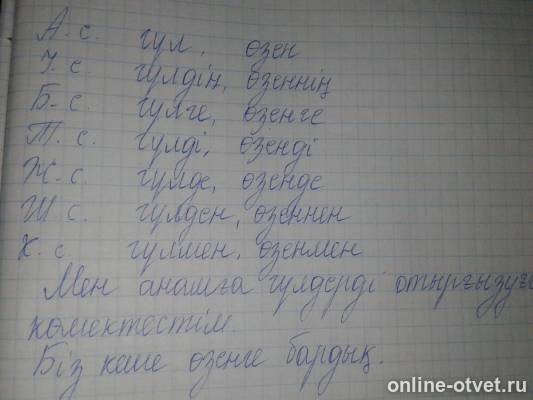 А. с. гүл, өзен
І. с. гүлдің, өзеннің
Б. с. гүлге, өзенге
Т. с. гүлді, өзенді
Ж. с. гүлде, өзенде
Ш с. гүлден, өзеннен
К. с. гүлмен, өзенмен
Мен анашға гүлдерді отырғызуға
көмектестім
Біз кеше өзенге бардық.
online-otvet.ru